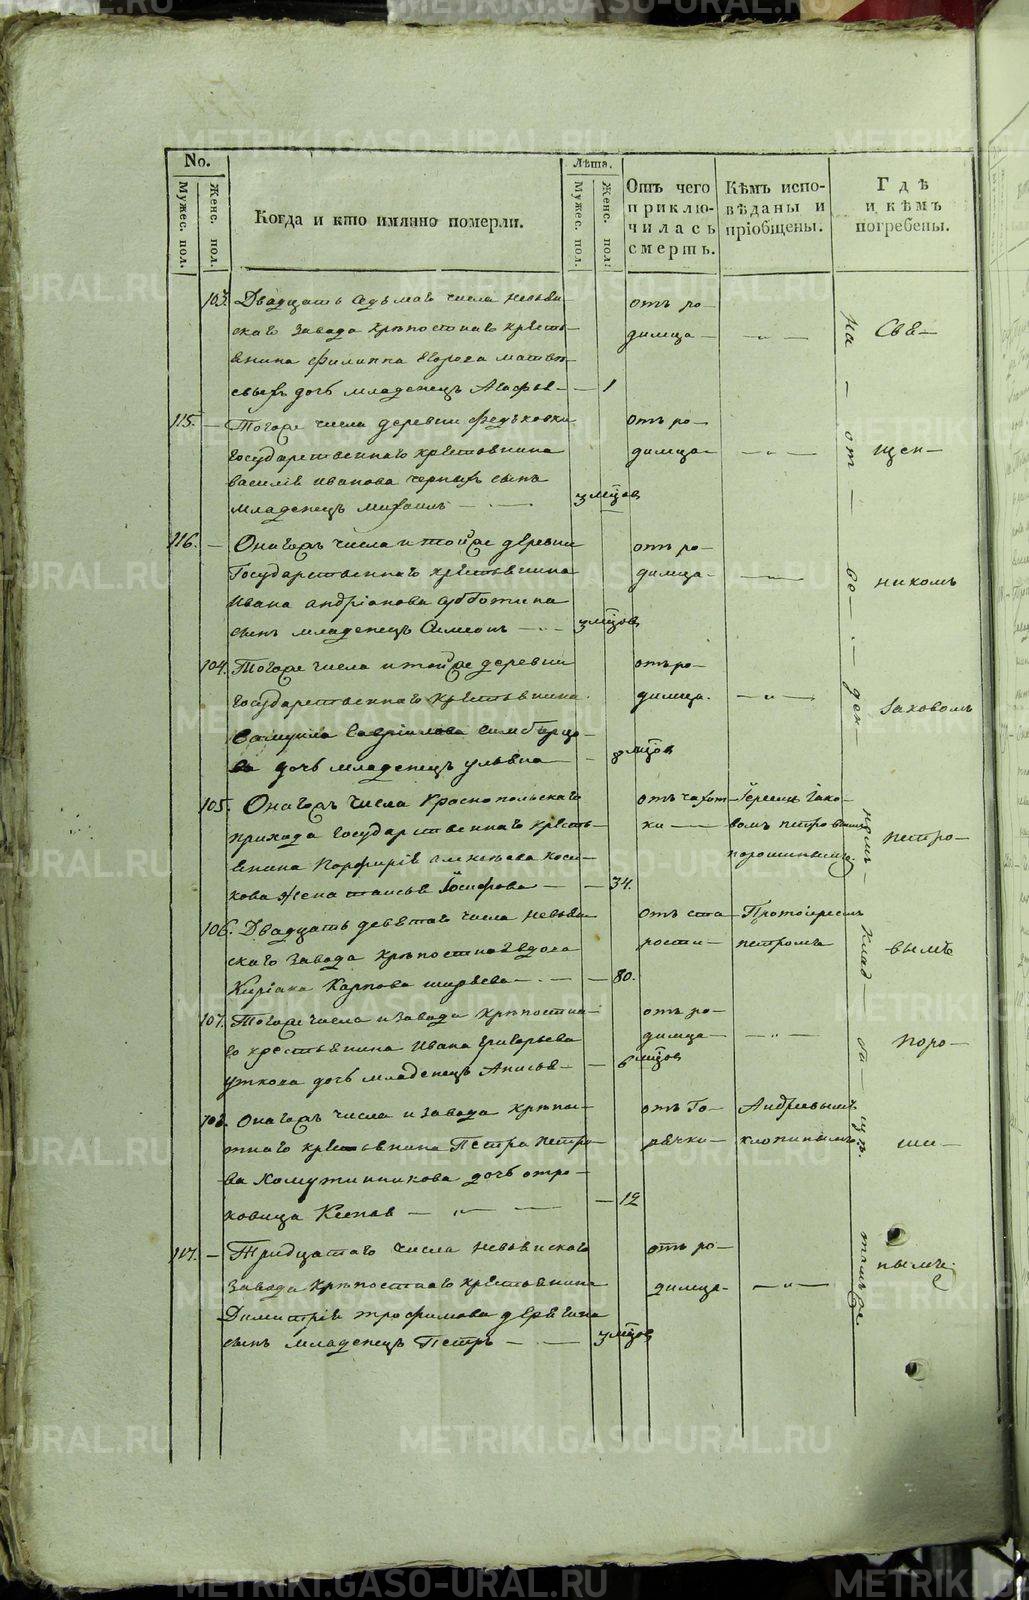 No.
Мужес. пол.
Женс. пол.
Когда и кто имянно померли.
Лѣта.
Мужес. пол.
Женс. пол.
Отъ чего приклю-
чилась
смерть.
Кѣмъ испо-
вѣданы и
пріобщены.
Гдѣ
и кѣмъ
погребены.
103. Двадцать седьмаго числа Невьян-
скаго завода крѣпостнаго кресть-
янина Филиппа Егорова Матвѣ-
евыхъ дочь младенецъ Агафья — 1
отъ ро-
димца —
115. — Тогоже числа деревни Федьковки
Государственнаго крестьянина
Василія Иванова Черныхъ сынъ
младенецъ Михаилъ — 3 мцов
отъ ро-
димца —
116. — Онагожъ числа и тойже деревни
Государственнаго крестьянина
Ивана Андріанова Субботина
сынъ младенецъ Симеонъ — 3 мцов
отъ ро-
димца —
104. Тогоже числа и тойже деревни
Государственнаго крестьянина
Самуила Гавріилова Симбирцо-
ва дочь младенецъ Ульяна — мцов
отъ ро-
димца —
105. Онагожъ числа Краснопольскаго
прихода Государственнаго кресть-
янина Порфирія
кова жена Таисья Іосифова — 34.
отъ чахот-
ки —
Іереемъ Іако-
вомъ Петровымъ
Порошинымъ
106. Двадцать девятаго числа Невьян-
скаго завода крѣпостная вдова
Киріана Карпова Ширяева — 80.
отъ ста-
рости —
Протоіереемъ
Петромъ
107. Тогоже числа и завода крѣпостна-
го крестьянина Ивана Григорьева
Уткова дочь младенецъ Анисья — 6 мцов
отъ ро-
димца —
108. Онагожъ числа и завода крѣпо-
стнаго крестьянина Петра Петро-
ва Хомутинникова дочь отро-
ковица Ксенія — 12
отъ го-
рячки —
Андреевымъ
Клопинымъ
117. — Тридцатаго числа Невьянскаго
завода крѣпостнаго крестьянина
Димитрія Трофимова Дерягина
сынъ младенецъ Петръ — 3 мцов
отъ ро-
димца —
на — от — во — ден — номъ — клад — би — щѣ. темъже.
Свя-
щен-
никомъ
Іаковомъ
Петро-
вымъ
Поро-
ши-
нымъ.
METRIKI.GASO-URAL.RU